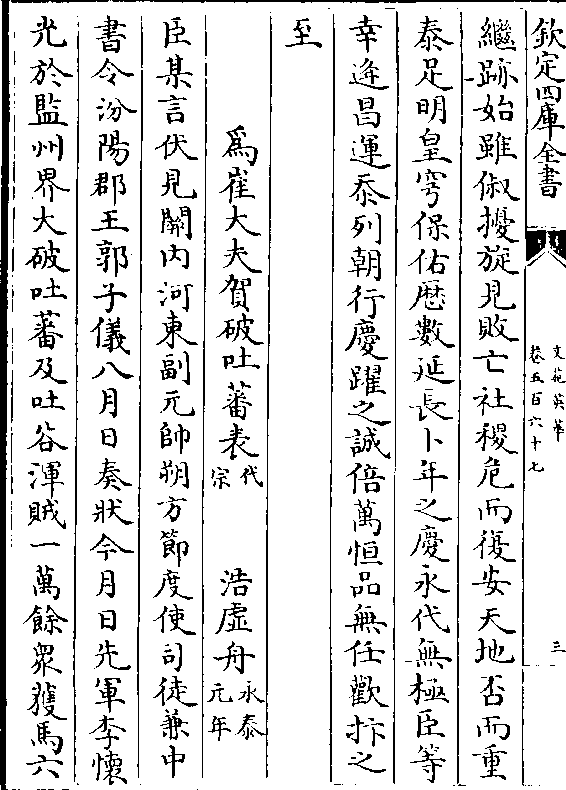 欽定四庫全書
文苑英華
卷五百六十七
三
繼跡始雖俶擾旋見敗亡社稷危而復安天地否而重
泰足明皇穹保佑厯數延長卜年之慶永代無極臣等
幸逢昌運忝列朝行慶躍之誠倍萬恒品無任歡抃之
至
為崔大夫賀破吐蕃表代宗
浩虛舟永泰元年
臣某言伏見關内河東副元帥朔方節度使司徒兼中
書令汾陽郡王郭子儀八月日奏狀今月日先軍李懷
光於監州界大破吐蕃及吐谷渾賊一萬餘眾獲馬六